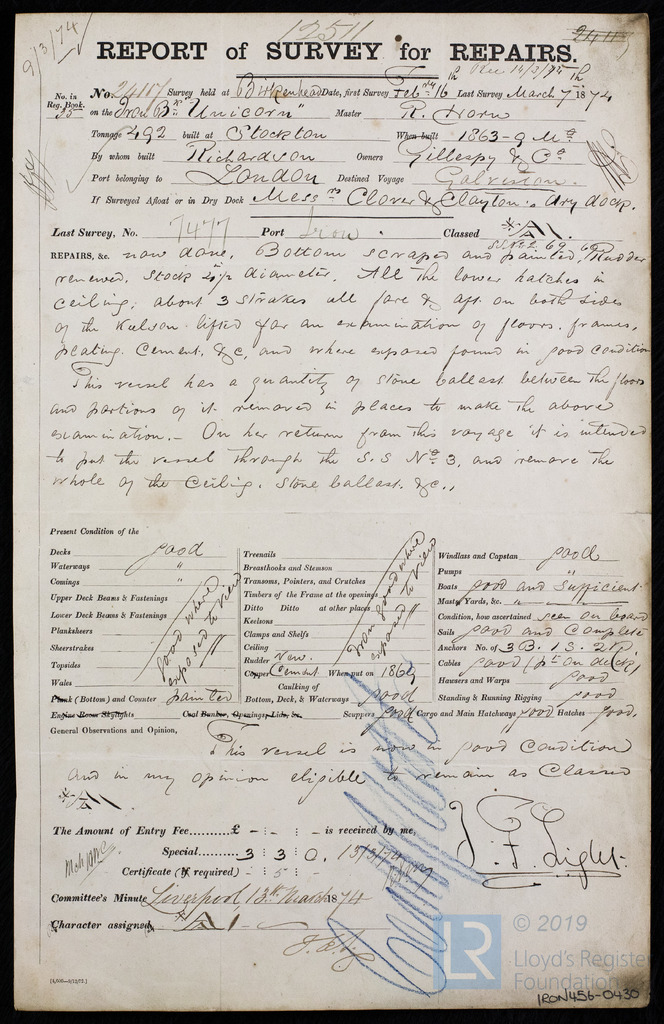 12511
9/3/74
REPORT of SURVEY for REPAIRS.
Rec 14/3/74
No. in Reg. Book. 25 No. Survey held at Birkenhead Date, first Survey Feb 16th Last Survey March 7th 1874
on the Iron Bk "Unicorn" Master R. Horn
Tonnage 492 built at Stockton When built 1863-9 Mo
By whom built Richardson Owners Gillespy & Co
Port belonging to London Destined Voyage Galveston.
If Surveyed Afloat or in Dry Dock Messrs Clover & Clayton's dry dock.
Last Survey, No. 7477 Port Iron Classed A
REPAIRS, &c. now done. Bottom scraped and painted, Rudder
renewed, stock 4 1/2 diameter. All the lower hatches in
ceiling, about 3 strakes all fore & aft on both sides
of the Kelson lifted for an examination of floors, frames,
plating. Cement. &c, and where exposed found in good condition
This vessel has a quantity of stone ballast between the floors
and portions of it removed in places to make the above
examination. – On her return from this voyage it is intended
to put the vessel through the S.S No 3, and remove the
whole of the ceiling, stone ballast. &c.,
Present Condition of the
Decks good
Waterways "
Comings "
Upper Deck Beams & Fastenings
Lower Deck Beams & Fastenings
Planksheers
Sheerstrakes
Topsides
Wales
good where exposed to view
Plank (Bottom) and Counter painted
Engine Room Skylights Coal Bunker, Openings, Lids, &c.
Treenails
Breasthooks and Stemson
Transoms, Pointers, and Crutches
Timbers of the Frame at the openings
Ditto Ditto at other places
Keelsons
Clamps and Shelfs
Ceiling
Iron good where exposed to view
Rudder New.
Copper Cement When put on 1869
Caulking of
Bottom, Deck, & Waterways good
Scuppers good Cargo and Main Hatchways good Hatches good.
Windlass and Capstan good
Pumps "
Boats good and sufficient
Masts, Yards, &c. " "
Condition, how ascertained seen on board
Sails good and complete
Anchors No. of 3 B. 1 S. 2 K.
Cables good (pt on deck)
Hawsers and Warps good
Standing & Running Rigging good
General Observations and Opinion,
This vessel is now in good condition
and in my opinion eligible to remain as Classed
A
The Amount of Entry Fee.......... £ - : - : - is received by me,
Special.......... 3 : 3 : 0. 13/3/74
Certificate (if required) - : 5 :
J. F. Light.
Committee's Minute Liverpool 13th March 1874
Character assigned, A1
[4,500—6/12/72.]
LR
© 2019
Lloyd's Register
Foundation
IRON456-0430